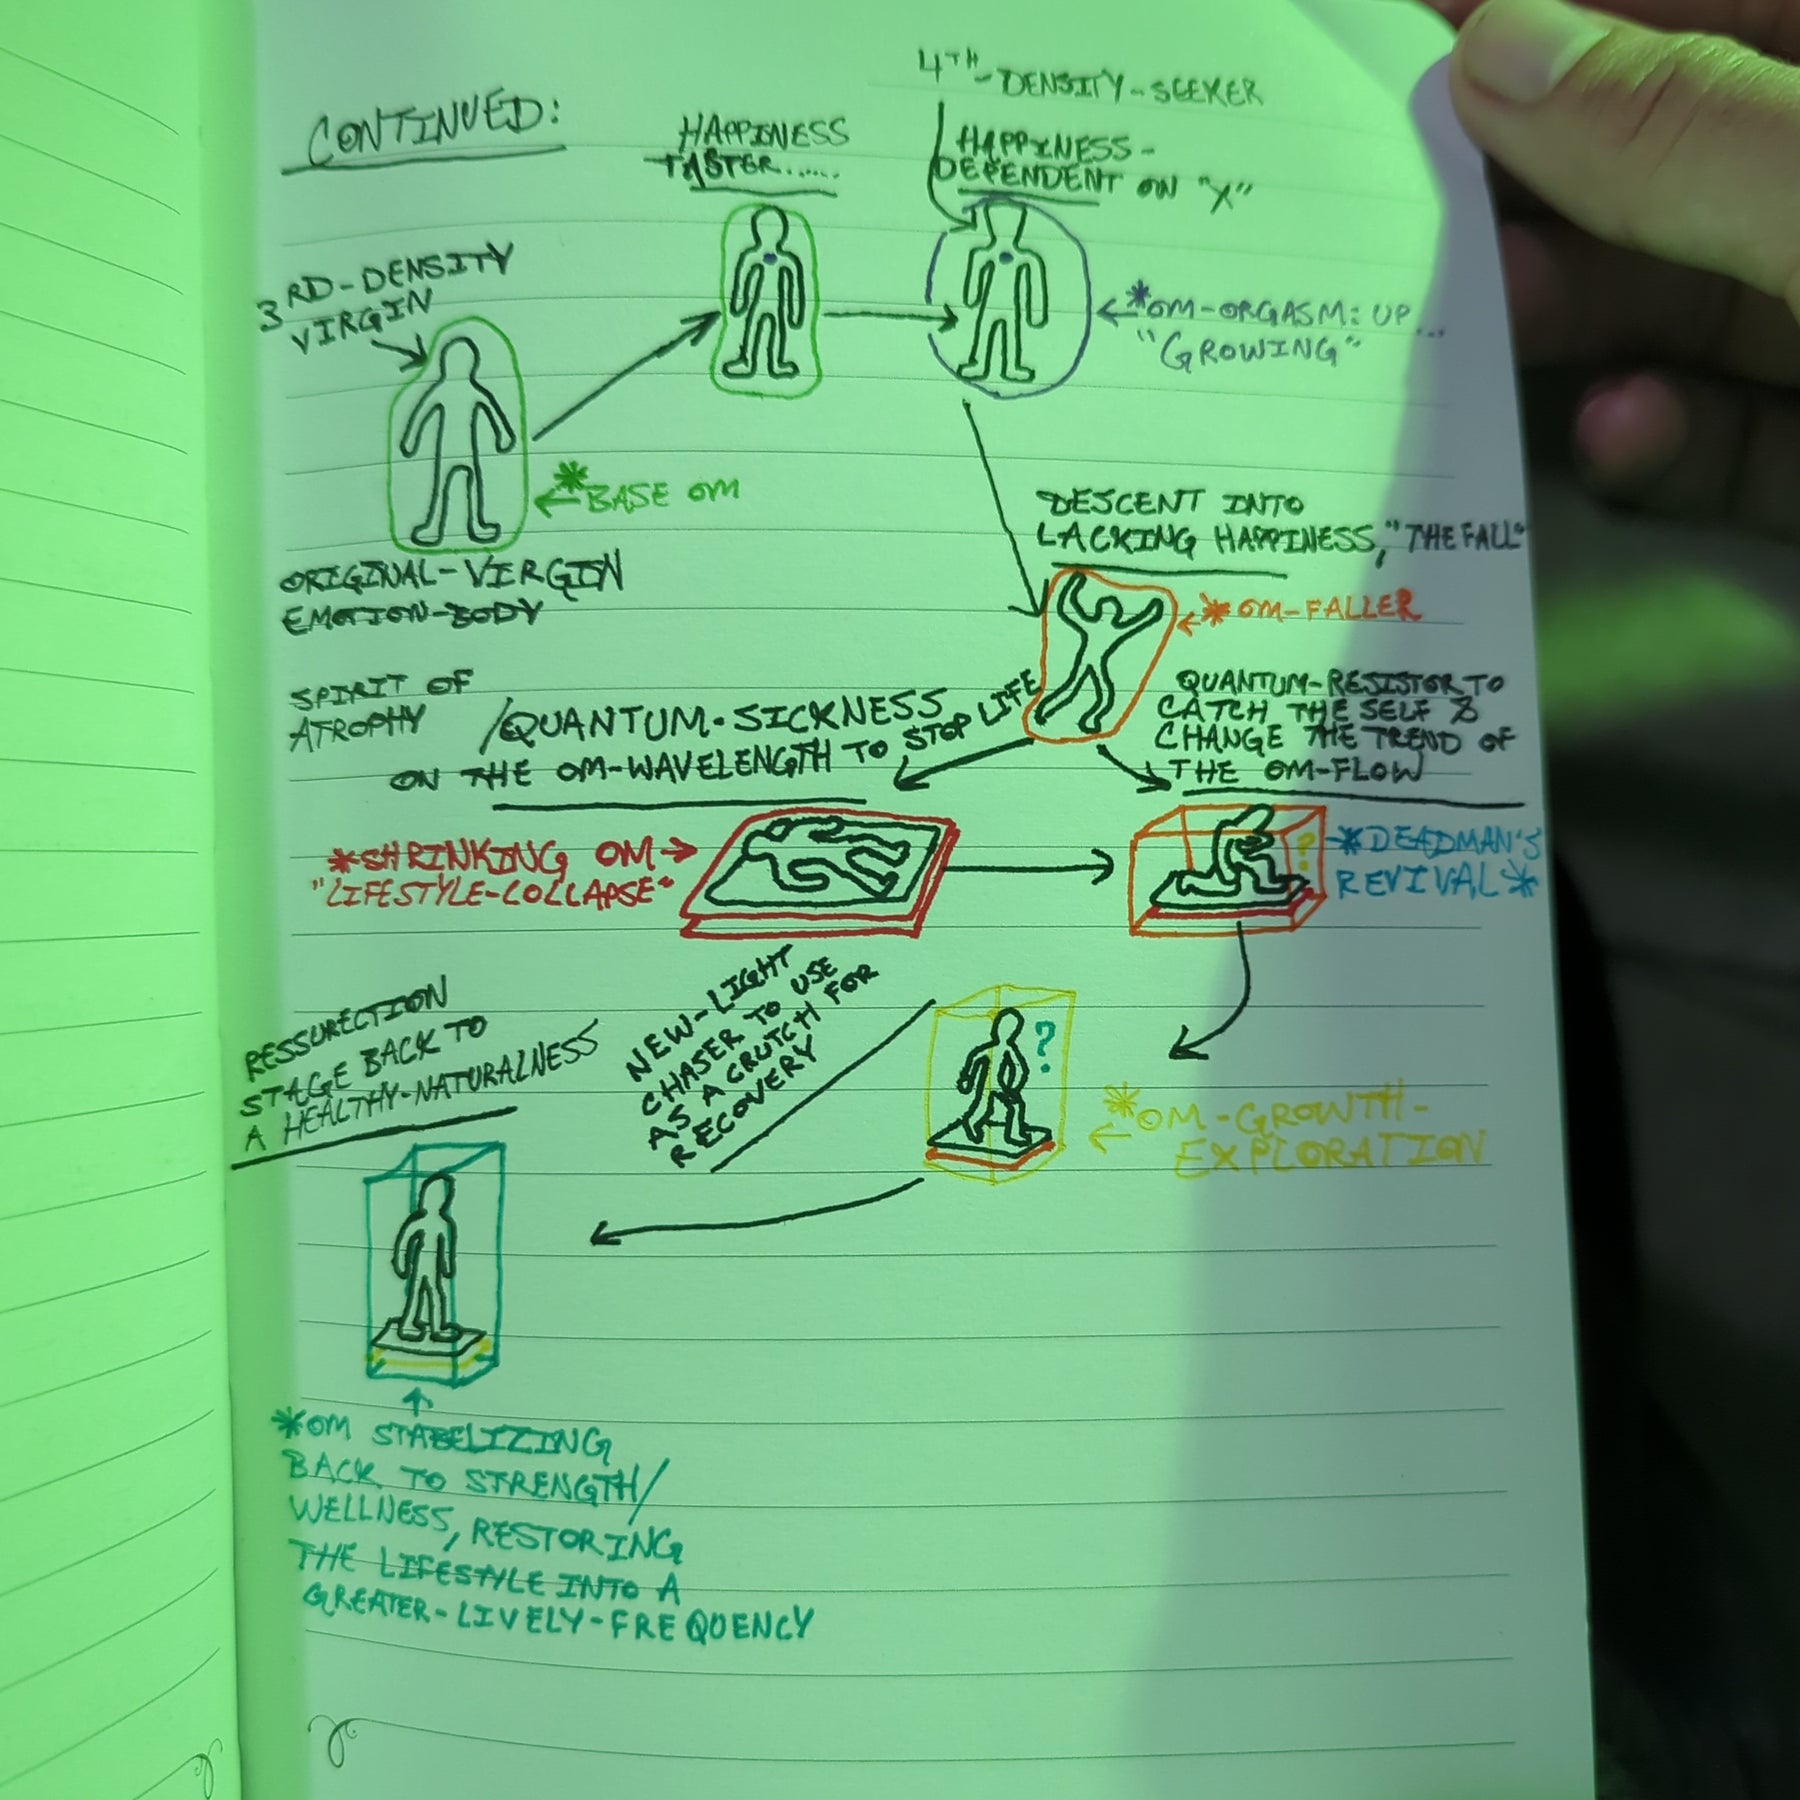 CONTINUED:
4TH-DENSITY-SEEKER
HAPPINESS
TASTER......
HAPPINESS-
DEPENDENT ON "X"
3RD-DENSITY
VIRGIN
*OM-ORGASM: UP...
"GROWING"
*BASE OM
ORIGINAL-VIRGIN
EMOTION-BODY
DESCENT INTO
LACKING HAPPINESS, "THE FALL"
*OM-FALLER
SPIRIT OF
ATROPHY
/QUANTUM-SICKNESS
ON THE OM-WAVELENGTH TO STOP LIFE
QUANTUM-RESISTOR TO
CATCH THE SELF &
CHANGE THE TREND OF
THE OM-FLOW
*SHRINKING OM
"LIFESTYLE-COLLAPSE"
?
*DEADMAN'S
REVIVAL*
RESSURECTION
STAGE BACK TO
A HEALTHY-NATURALNESS
NEW-LIGHT
CHASER TO USE
AS A CRUTCH FOR
RECOVERY
?
*OM-GROWTH-
EXPLORATION
*OM STABELIZING
BACK TO STRENGTH/
WELLNESS, RESTORING
THE LIFESTYLE INTO A
GREATER-LIVELY-FREQUENCY